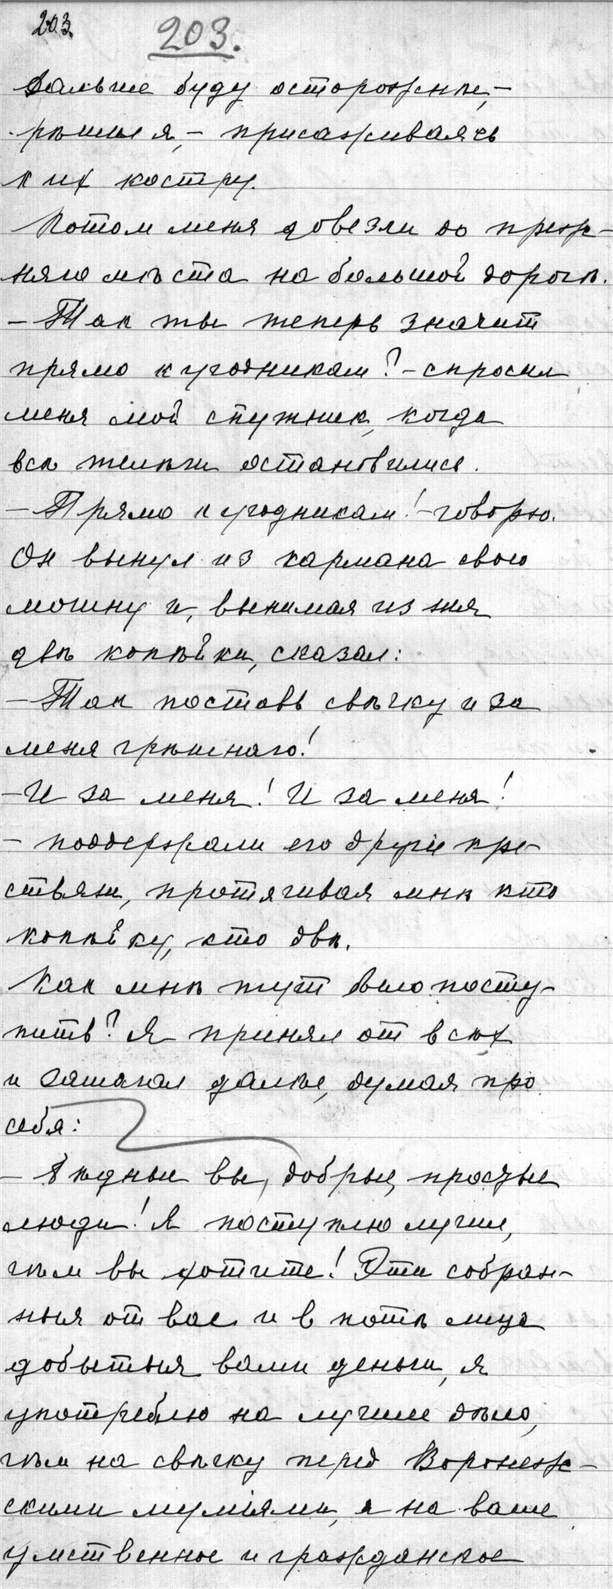 203.
203.
дальше буду осторожнѣе,–
рѣшил я,– присаживаясь
к их костру.
Потом меня довезли до преж-
няго мѣста на большой дорогѣ.
– Так ты теперь значит
прямо к угодникам? – спросил
меня мой спутник, когда
всѣ телѣги остановились.
– Прямо к угодникам! – говорю.
Он вынул из кармана свою
мошну и, вынимая из нея
двѣ копѣйки, сказал:
– Так поставь свѣчку и за
меня грѣшнаго!
– И за меня! И за меня!
– поддержали его другіе кре-
стьяне, протягивая мнѣ кто
копѣйку, кто двѣ.
Как мнѣ тут было посту-
пить? Я принял от всѣх
и зашагал далѣе, думая про
себя:
– Бѣдные вы, добрые, простые
люди! Я поступлю лучше,
чѣм вы хотите! Эти собран-
ныя от вас и в потѣ лица
добытыя вами деньги, я
употреблю на лучшее дѣло,
чѣм на свѣчку перед Воронеж-
скими муміями, а на ваше
умственное и гражданское